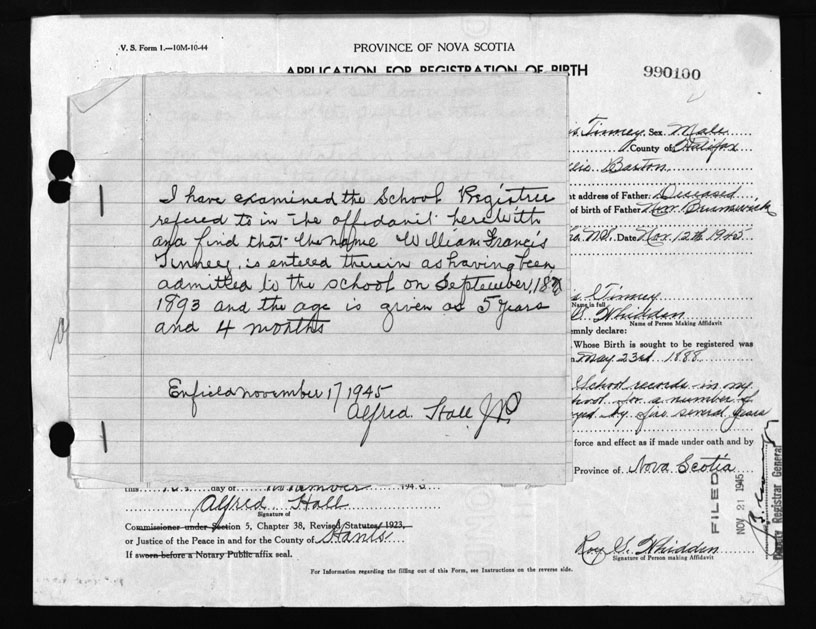 V. S. Form 1.—10M-10-44
PROVINCE OF NOVA SCOTIA
APPLICATION FOR REGISTRATION OF BIRTH
990100
Tinney Sex. Male
County of Halifax
Barton
address of Father: Deceased
of birth of Father New Brunswick
Date Nov. 12th 1945
I have examined the School Registree
refered to in The affidavit herewith
and find that the name William Francis
Tinney, is entered therein as having been
admitted to the school on September, 18th
1893 and the age is given as 5 years
and 4 months
Enfield november 17 1945
Alfred Hall J.P.
Tinney
Name in full
Whidden
Name of Person Making Affidavit
emnly declare:
Whose Birth is sought to be registered was
May 23rd 1888
School records in my
for a number of
by for several years
force and effect as if made under oath and by
Province of Nova Scotia
this day of 194
Alfred Hall
Signature of
Commissioner under Section 5, Chapter 38, Revised Statutes 1923,
or Justice of the Peace in and for the County of Hants
If sworn before a Notary Public affix seal.
FILED
NOV 21 1945
Deputy Registrar General
Roy G. Whidden
Signature of Person making Affidavit
For Information regarding the filling out of this Form, see Instructions on the reverse side.